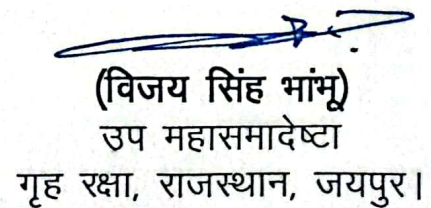 (विजय सिंह भांभू)
उप महासमादेष्टा
गृह रक्षा, राजस्थान, जयपुर।